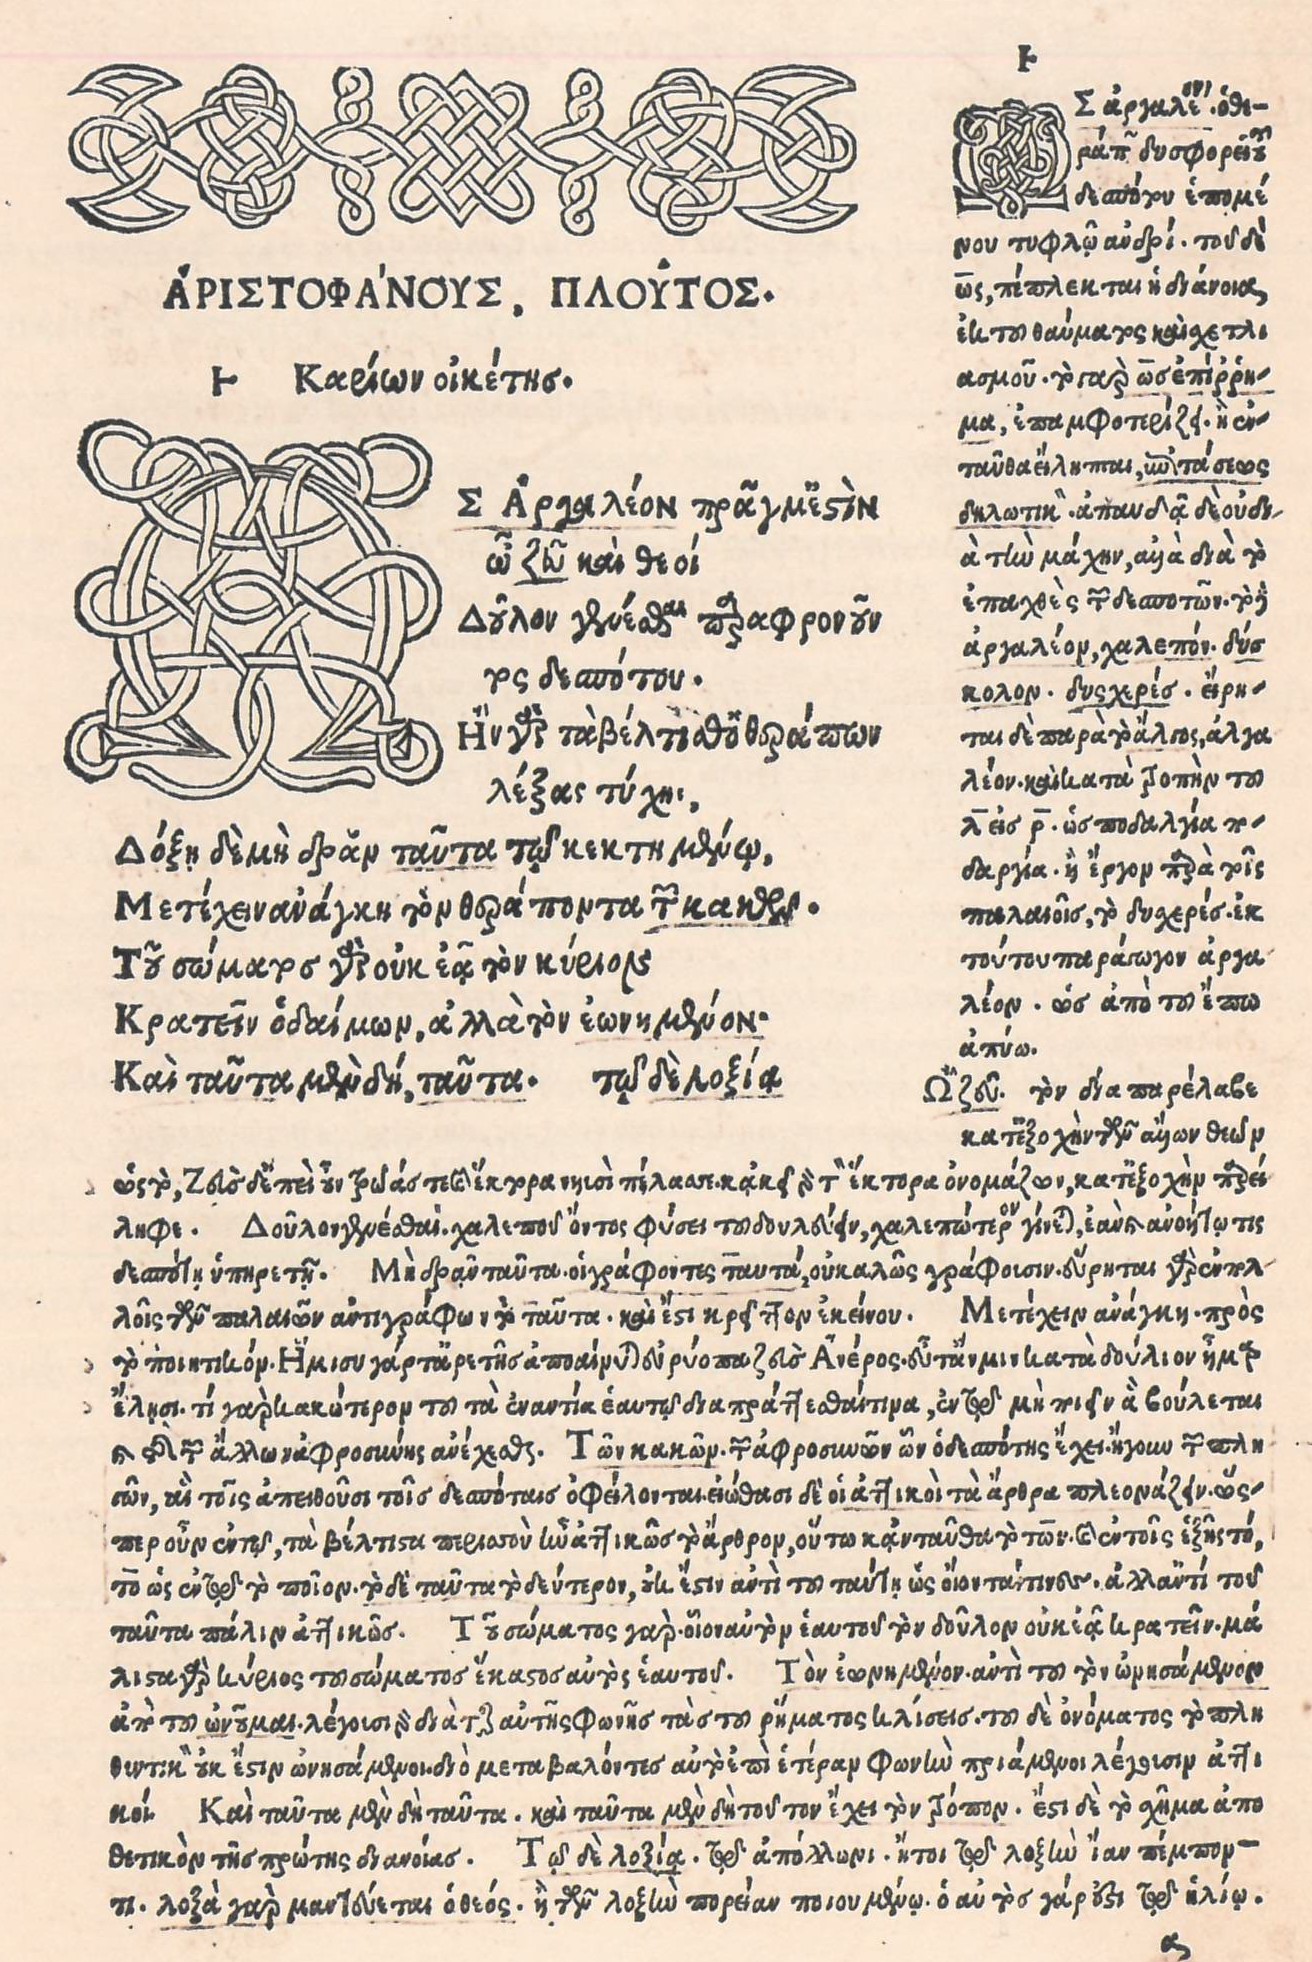 ἈΡΙΣΤΟΦΆΝΟΥΣ, ΠΛΟΥ͂ΤΟΣ.
Καρίων οἰκέτης.
Σ Ἀργαλέον πρᾶγμ' ἔστὶν
ὦ ζεῦ καὶ θεοὶ
Δοῦλον γενέσθαι παραφρονοῦν
τος δεσπότου.
Ἢν γὰρ τὰ βέλτισθ' ὁ θεράπων
λέξας τύχηι,
Δόξῃ δὲ μὴ δρᾶν ταῦτα τῷ κεκτημένῳ,
Μετέχειν ἀνάγκη τὸν θεράποντα τῶν κακῶν.
Τοῦ σώματος γὰρ οὐκ ἐᾷ τὸν κύριον
Κρατεῖν ὁ δαίμων, ἀλλὰ τὸν ἐωνημένον.
Καὶ ταῦτα μὲν δή, ταῦτα. τῷ δὲ λοξίᾳ
Σ ἀργαλέον. ὁ θε-
ράπων δυσφορεῖ τοῦ
δεσπότου ἑπομέ
νου τυφλῷ ἀνδρί. τοῦ δὲ
ὡς, πέπλεκται ἡ διάνοια,
ἐκ τοῦ θαύματος καὶ σχετλι
ασμοῦ. τὸ γὰρ ὡς ἐπίρρη-
μα, ἐπαμφοτερίζει. ἢ ἐν-
ταῦθα εἴληπται,
δηλωτικὸν. ἀπαυδᾷ δὲ οὐ δι-
ὰ τὴν μάχην, ἀλλὰ διὰ τὸ
ἐπαχθὲς τῶν δεσποτῶν. τὸ δὲ
ἀργαλέον, χαλεπόν. δύσ
κολον. δυσχερές. εἴρη-
ται δὲ παρὰ τὸ ἄλγος, ἀλγα
λέον. καὶ κατὰ τροπὴν τοῦ
λ εἰς ρ. ὡς ποδαλγία πο-
δαργία. ἢ ἔργον παρὰ τοῖς
παλαιοῖς, τὸ δυσχερές. ἐκ
τούτου παράγωγον ἀργα
λέον. ὡς ἀπὸ τοῦ ἔπω
ἀπύω.
Ὦ ζεῦ. τὸν δία παρέλαβε
κατ' ἐξοχὴν τῶν ἄλλων θεῶν
ὡς τὸ, Ζεὺς δ' ἐπεὶ οὖν τρῶάς τε καὶ ἕκτορα νηυσὶ πέλασσε. κἀκεῖ γὰρ τὸν ἕκτορα ὀνομάζων, κατ' ἐξοχὴν παρεί
ληφε. Δοῦλον γενέσθαι. χαλεποῦ ὄντος φύσει τοῦ δουλεύειν, χαλεπώτερον γίνεται, ἐὰν καὶ ἀνοήτῳ τις
δεσπότῃ ὑπηρετῇ. Μὴ δρᾶν ταῦτα. οἱ γράφοντες ταυτά, οὐ καλῶς γράφουσιν. εὕρηται γὰρ ἐν πολ-
λοῖς τῶν παλαιῶν ἀντιγράφων τὸ ταῦτα. καὶ ἔστι κρεῖττον ἐκείνου. Μετέχειν ἀνάγκη. πρὸς
τὸ ποιητικόν. Ἥμισυ γάρ τ' ἀρετῆς ἀποαίνυται εὐρύοπα ζεὺς Ἀνέρος. εὖτ' ἄν μιν κατὰ δούλιον ἦμαρ
ἕλησι. τί γὰρ κακώτερον τοῦ τὰ ἐναντία ἑαυτῷ διαπράττεσθαί τινα, ἐν τῷ μὴ ποιεῖν ἃ βούλεται
καὶ διὰ τῶν ἄλλων ἀφροσύνης ἀνέχεσθαι. Τῶν κακῶν. τῶν ἀφροσυνῶν ὧν ὁ δεσπότης ἔχει. ἤγουν τῶν πλη
γῶν, αἳ τοῖς ἀπειθοῦσι τοῖς δεσπόταις ὀφείλονται. εἰώθασι δὲ οἱ ἀττικοὶ τὰ ἄρθρα πλεονάζειν. ὥς-
περ οὖν ἐν τῷ, τὰ βέλτιστα περισσὸν ἦν ἀττικῶς τὸ ἄρθρον, οὕτω κἀνταῦθα τὸ τῶν. καὶ ἐν τοῖς ἑξῆς τό,
τὸ ὡς ἐν τῷ τὸ ποῖον. τὸ δὲ ταῦτα τὸ δεύτερον, οὐκ ἔστιν ἀντὶ τοῦ ταύτῃ ὡς οἴονταί τινες. ἀλλ' ἀντὶ τοῦ
ταῦτα πάλιν ἀττικῶς. Τοῦ σώματος γάρ. οἷον αὐτὸν ἑαυτοῦ τὸν δοῦλον οὐκ ἐᾷ κρατεῖν. μά
λιστα γὰρ κύριος τοῦ σώματος ἕκαστος αὐτὸς ἑαυτοῦ. Τὸν ἐωνημένον. ἀντὶ τοῦ τὸν ὠνησάμενον
ἀπὸ τοῦ ὠνοῦμαι. λέγουσι γὰρ διὰ τῆς αὐτῆς φωνῆς τὰς τοῦ ῥήματος κλίσεις. τοῦ δὲ ὀνόματος τὸ πλη
θυντικὸν οὐκ ἔστιν ὠνησάμενοι. διὸ μεταβαλόντες αὐτὸ ἐπὶ ἑτέραν φωνὴν πριάμενοι λέγουσιν ἀττι
κοί. Καὶ ταῦτα μὲν δὴ ταῦτα. καὶ ταῦτα μὲν δὴ τοῦτον ἔχει τὸν τρόπον. ἔστι δὲ τὸ σχῆμα ἀπο
θετικὸν τῆς πρώτης διανοίας. Τῷ δὲ λοξίᾳ. τῷ ἀπόλλωνι. ἤτοι τῷ λοξὴν ἴαν πέμπον-
τι. λοξὰ γὰρ μαντεύεται ὁ θεός. ἢ τῷ λοξὴν πορείαν ποιουμένῳ. ὁ αὐτὸς γάρ ἐστι τῷ ἡλίῳ.
α